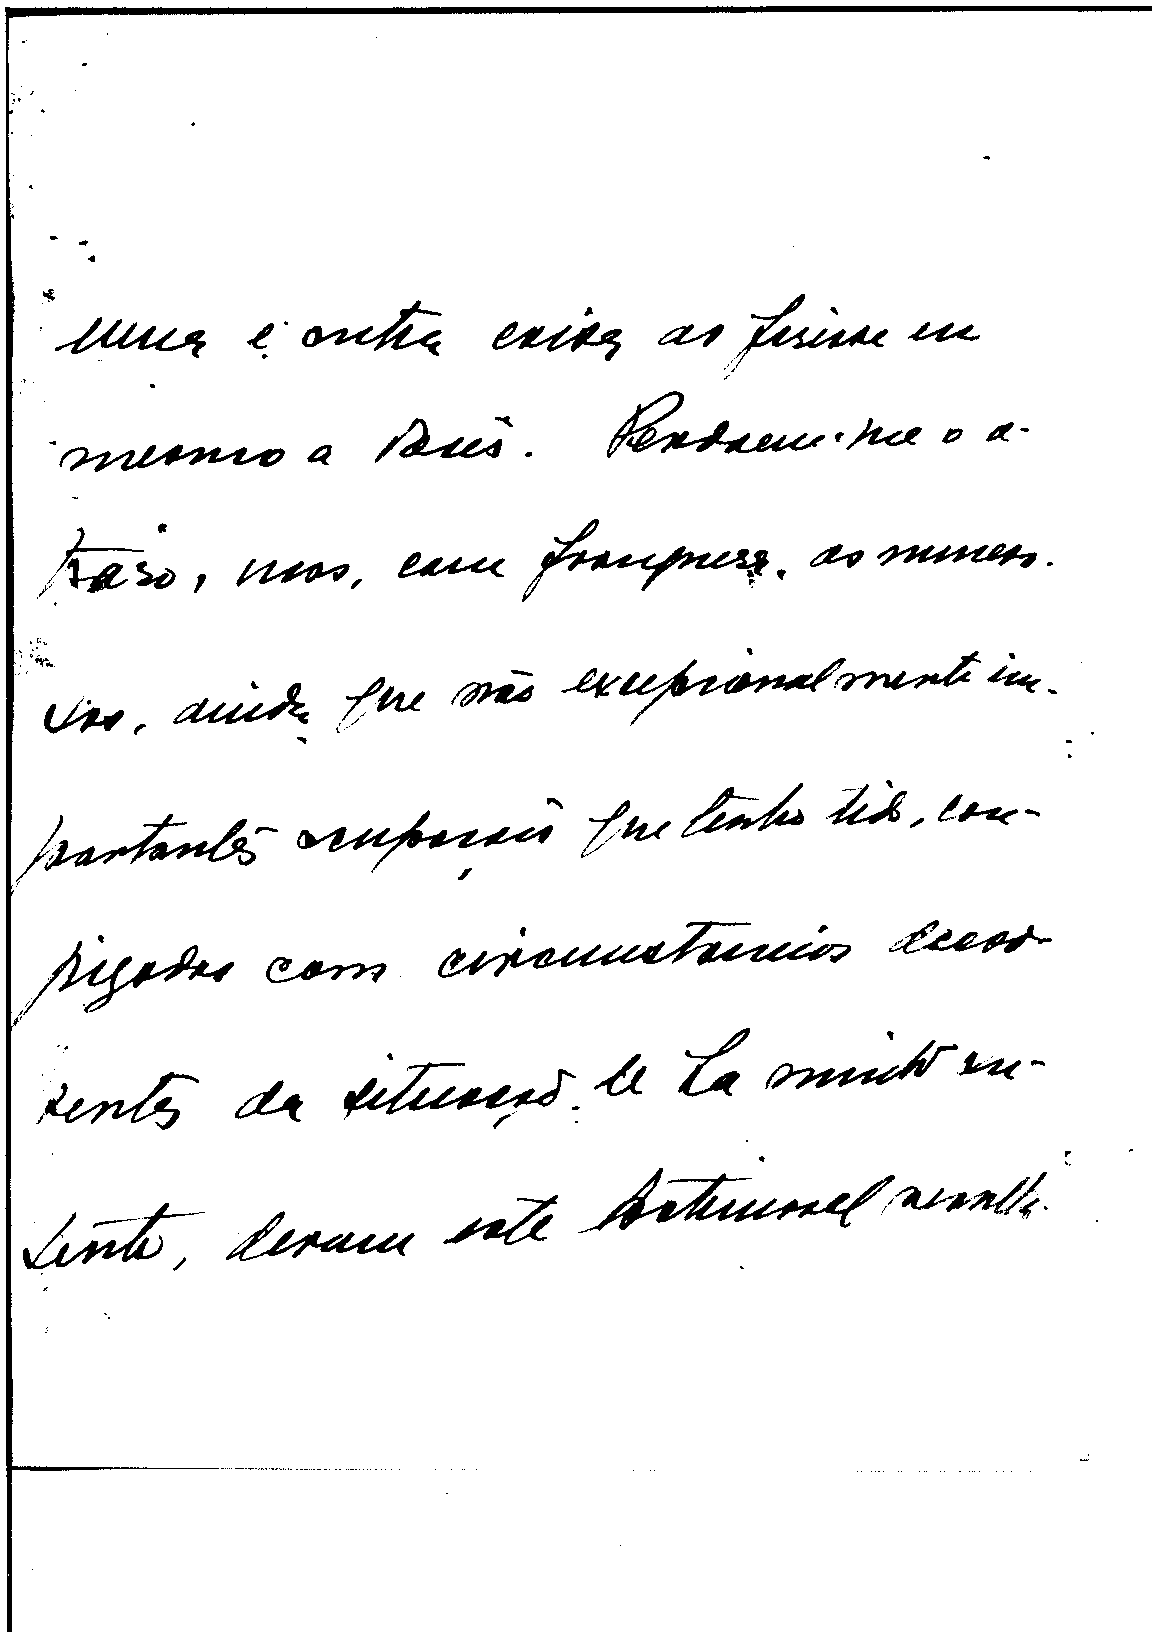 uma e outra coisa as fizesse eu
mesmo a Vocês. Perdoem-me o a-
traso, mas, com franqueza, as numero-
sas, ainda que não excepcionalmente im-
portantes occupações que tenho tido, con-
jugadas com circumstancias decor-
rentes da situação de La muito au-
sente, deram este lastimavel resulta-